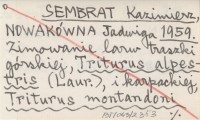 SEMBRAT Kazimierz,
NOWAKÓWNA Jadwiga 1959.
Zimowanie larw traszki
górskiej, Triturus alpes-
tris (Laur.), i karpackiej,
Triturus montandoni